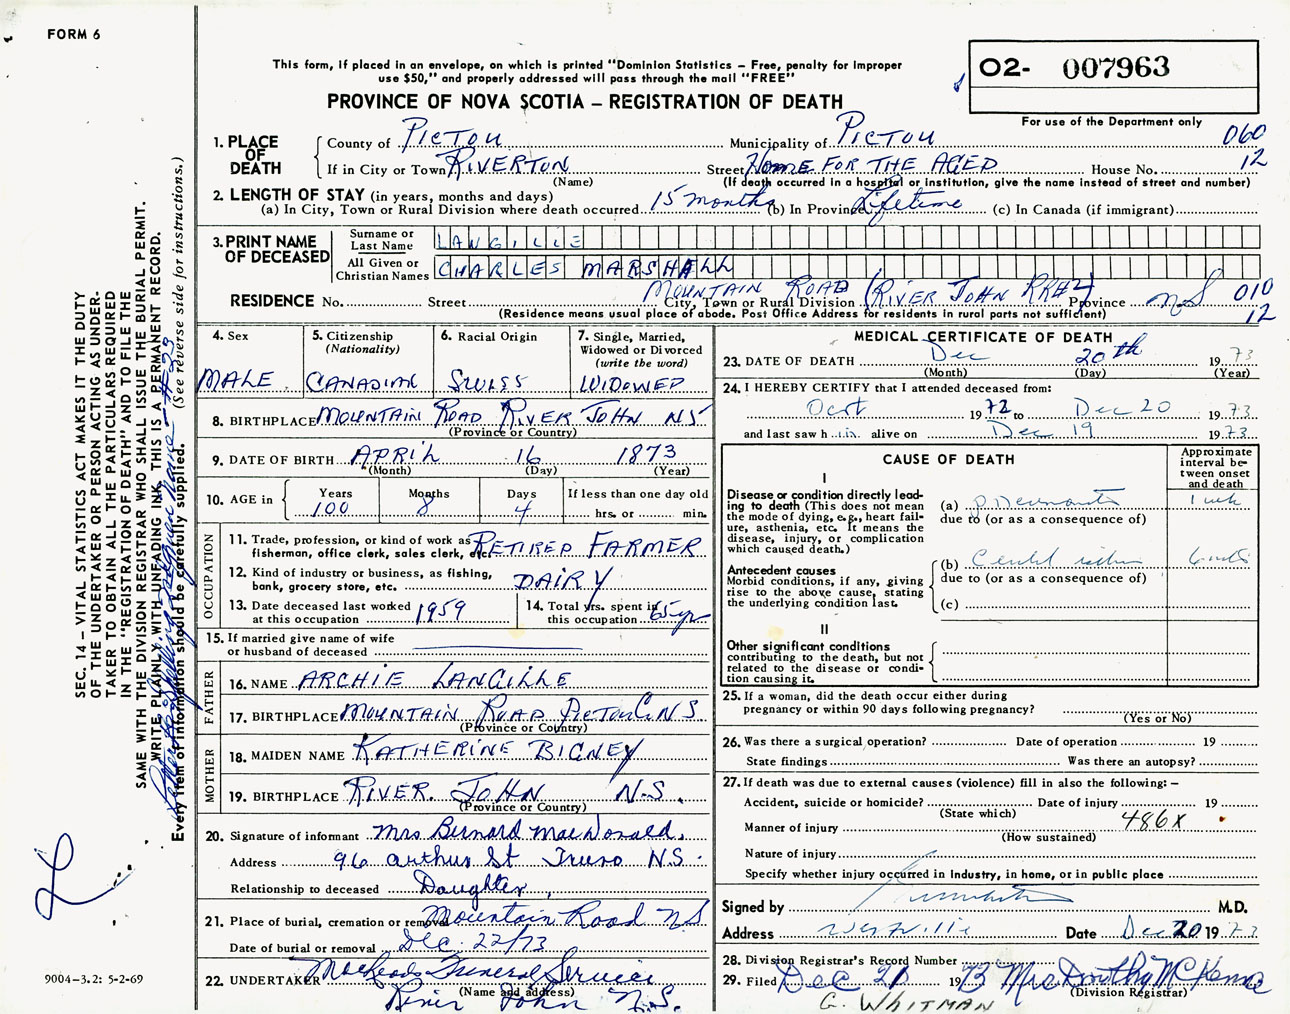 FORM 6
This form, if placed in an envelope, on which is printed "Dominion Statistics – Free, penalty for improper
use $50," and properly addressed will pass through the mail "FREE"
O2- 007963
For use of the Department only
PROVINCE OF NOVA SCOTIA – REGISTRATION OF DEATH
060
12
1. PLACE OF DEATH
County of PICTOU Municipality of PICTOU
If in City or Town RIVERTON Street HOME FOR THE AGED House No.
(Name) (If death occurred in a hospital or institution, give the name instead of street and number)
2. LENGTH OF STAY (in years, months and days)
(a) In City, Town or Rural Division where death occurred 15 months (b) In Province Lifetime (c) In Canada (if immigrant)
3. PRINT NAME OF DECEASED
Surname or Last Name LANGILLE
All Given or Christian Names CHARLES MARSHALL
MOUNTAIN ROAD (RIVER JOHN RR#2)
RESIDENCE No. Street City, Town or Rural Division Province NS 010
12
(Residence means usual place of abode. Post Office Address for residents in rural parts not sufficient)
4. Sex
MALE
5. Citizenship
(Nationality)
CANADIAN
6. Racial Origin
SWISS
7. Single, Married,
Widowed or Divorced
(write the word)
WIDOWED
8. BIRTHPLACE MOUNTAIN ROAD RIVER JOHN NS
(Province or Country)
9. DATE OF BIRTH APRIL 16 1873
(Month) (Day) (Year)
10. AGE in Years Months Days If less than one day old
100 8 4 hrs. or min.
OCCUPATION
11. Trade, profession, or kind of work as RETIRED FARMER
fisherman, office clerk, sales clerk, etc.
12. Kind of industry or business, as fishing, DAIRY
bank, grocery store, etc.
13. Date deceased last worked 1959
at this occupation
14. Total yrs. spent in 65 yr
this occupation
15. If married give name of wife
or husband of deceased
FATHER
16. NAME ARCHIE LANGILLE
17. BIRTHPLACE MOUNTAIN ROAD PICTOU C. NS
(Province or Country)
MOTHER
18. MAIDEN NAME KATHERINE BIGNEY
19. BIRTHPLACE RIVER. JOHN N.S.
(Province or Country)
20. Signature of informant Mrs Bernard MacDonald.
Address 96 Arthur St Truro N.S.
Relationship to deceased Daughter.
21. Place of burial, cremation or removal Mountain Road NS
Date of burial or removal Dec. 22/73
22. UNDERTAKER MacLeods Funeral Services
(Name and address)
River John N.S.
MEDICAL CERTIFICATE OF DEATH
23. DATE OF DEATH Dec 20th 1973
(Month) (Day) (Year)
24. I HEREBY CERTIFY that I attended deceased from:
Oct 1972 to Dec 20 1973
and last saw him alive on Dec 19 1973
CAUSE OF DEATH
Approximate interval between onset and death
I
Disease or condition directly leading to death (This does not mean the mode of dying, e.g., heart failure, asthenia, etc. It means the disease, injury, or complication which caused death.)
(a) Pneumonia 1 wk
due to (or as a consequence of)
Antecedent causes
Morbid conditions, if any, giving rise to the above cause, stating the underlying condition last.
(b)
due to (or as a consequence of)
(c)
II
Other significant conditions
contributing to the death, but not related to the disease or condition causing it.
25. If a woman, did the death occur either during
pregnancy or within 90 days following pregnancy?
(Yes or No)
26. Was there a surgical operation? Date of operation 19
State findings Was there an autopsy?
27. If death was due to external causes (violence) fill in also the following: –
Accident, suicide or homicide? Date of injury 19
(State which)
Manner of injury 486X
(How sustained)
Nature of injury
Specify whether injury occurred in Industry, in home, or in public place
Signed by M.D.
Address Westville Date Dec 20 1973
28. Division Registrar's Record Number
29. Filed Dec 21 1973 Mrs Dorothy McKenna
(Division Registrar)
G. WHITMAN
SEC. 14 – VITAL STATISTICS ACT MAKES IT THE DUTY
OF THE UNDERTAKER OR PERSON ACTING AS UNDER-
TAKER TO OBTAIN ALL THE PARTICULARS REQUIRED
IN THE "REGISTRATION OF DEATH" AND TO FILE THE
SAME WITH THE DIVISION REGISTRAR WHO SHALL ISSUE THE BURIAL PERMIT.
WRITE PLAINLY, WITH UNFADING INK, THIS IS A PERMANENT RECORD.
Every item of information should be carefully supplied. (See reverse side for instructions.)
L
9004–3.2: 5-2-69